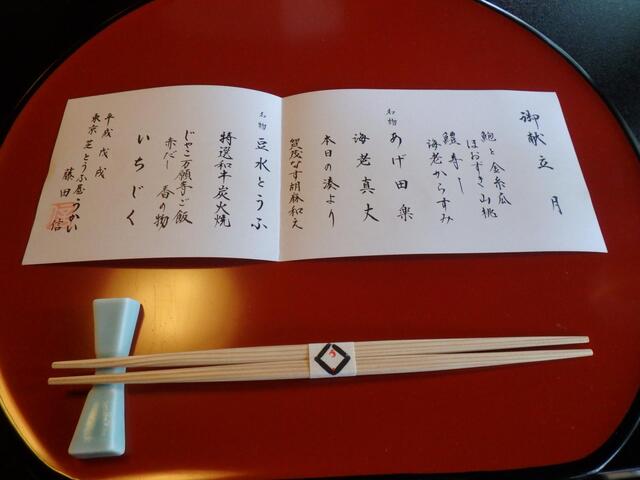 御献立 月
鮑と金糸瓜
ほおずき 山桃
鱧寿し
海老からすみ
名物 あげ田楽
海老真丈
本日の湊より
賀茂なす胡麻和え
名物 豆水とうふ
特選和牛炭火焼
じゃこ万願寺ご飯
赤だし 香の物
いちじく
平成 戊戌
東京 芝 とうふ屋うかい
藤田